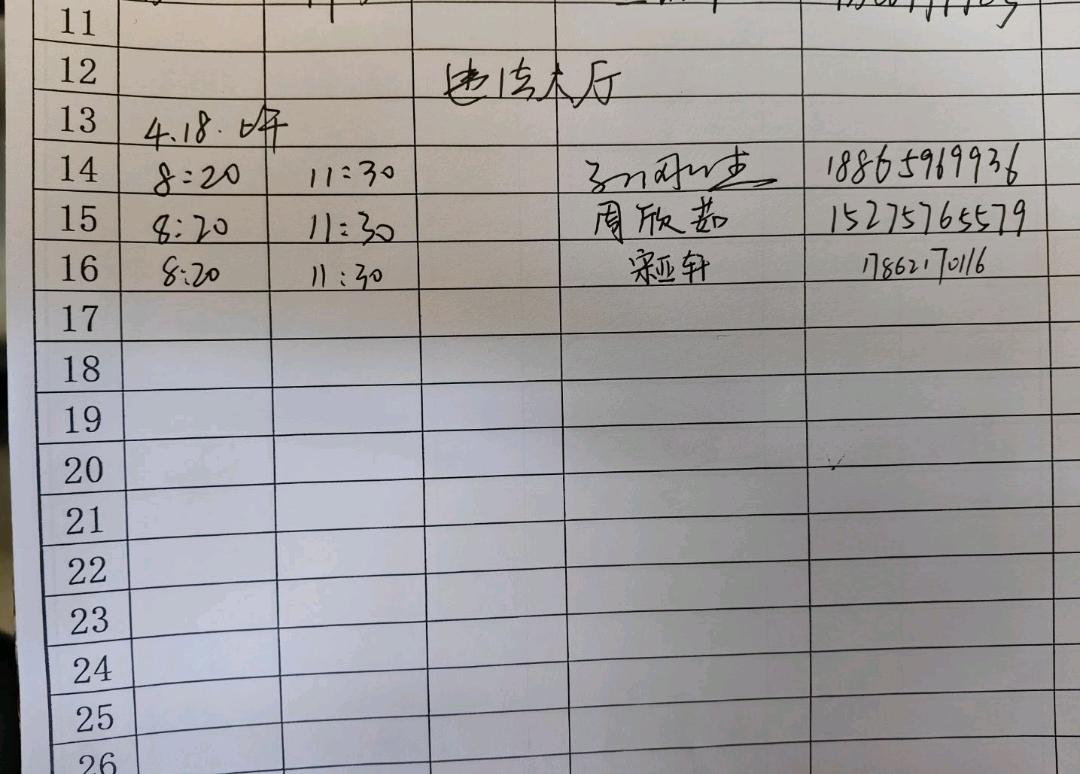 11
12 违法大厅
13 4.18.
14 8:20 11:30 18865969936
15 8:20 11:30 周欣茹 15275765579
16 8:20 11:30 宋亚轩 17862170116
17
18
19
20
21
22
23
24
25
26